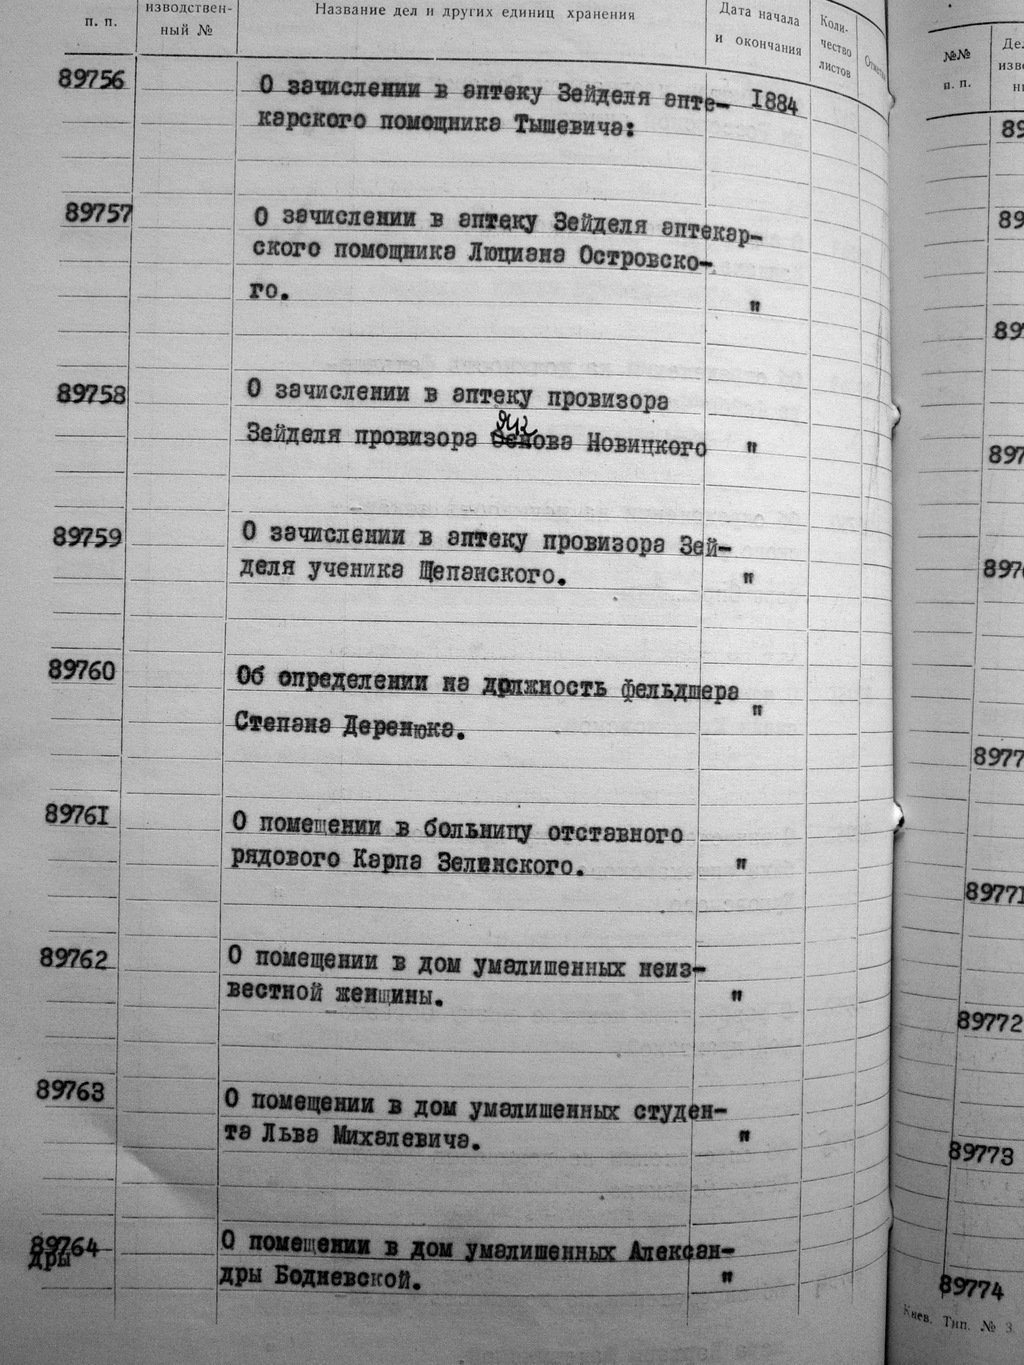 п. п.
изводствен-
ный №
Название дел и других единиц хранения
Дата начала
и окончания
Коли-
чество
листов
89756
О зачислении в аптеку Зейделя апте-
1884
карского помощника Тышевича:
89757
О зачислении в аптеку Зейделя аптекар-
ского помощника Люциана Островско-
го.
"
89758
О зачислении в аптеку провизора
Зейделя провизора Новицкого
"
89759
О зачислении в аптеку провизора Зей-
деля ученика Щепанского.
"
89760
Об определении на должность фельдшера
"
Степана Деренюка.
89761
О помещении в больницу отставного
рядового Карпа Зелинского.
"
89762
О помещении в дом умалишенных неиз-
вестной женщины.
"
89763
О помещении в дом умалишенных студен-
та Льва Михалевича.
"
89764
дры
О помещении в дом умалишенных Алексан-
дры Бодневской.
"
№№
п. п.
89771
89772
89773
89774
Киев. Тип. № 3